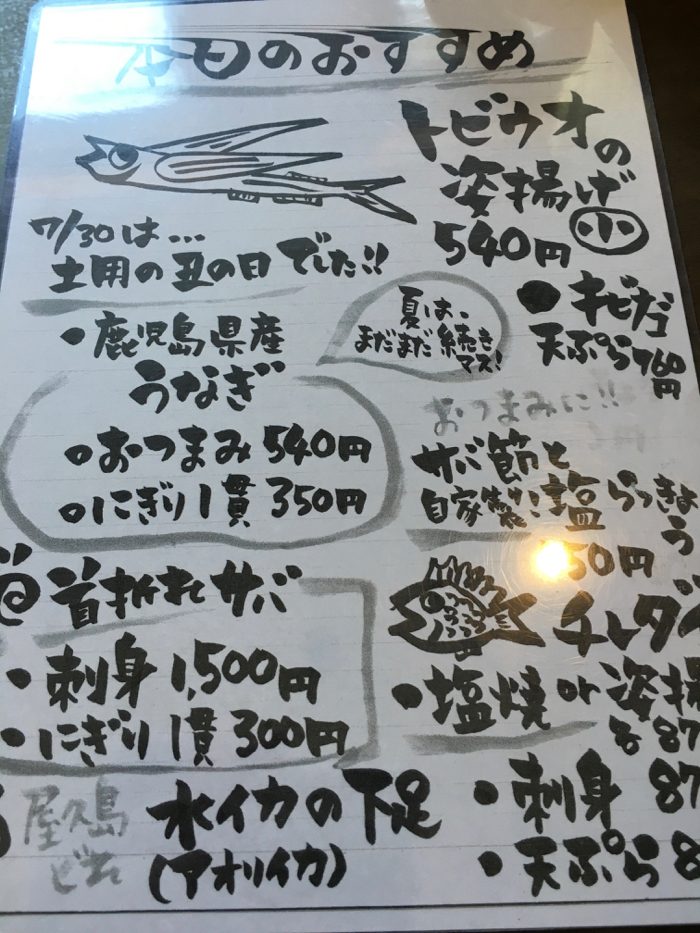 本日のおすすめ
トビウオの
姿揚げ 小
540円
7/30は...
土用の丑の日 でした!!
・鹿児島県産
うなぎ
おつまみ 540円
にぎり1貫 350円
夏は、
まだまだ 続き
マス!
●キビナゴ
天ぷら 760円
おつまみに!!
サバ節と
自家製 塩らっきょう
50円
首折れ サバ
・刺身 1,500円
・にぎり 1貫 300円
チレダイ
・塩焼 or 姿揚
87
・刺身 87
・天ぷら 8
屋久島
水イカの下足
(アオリイカ)